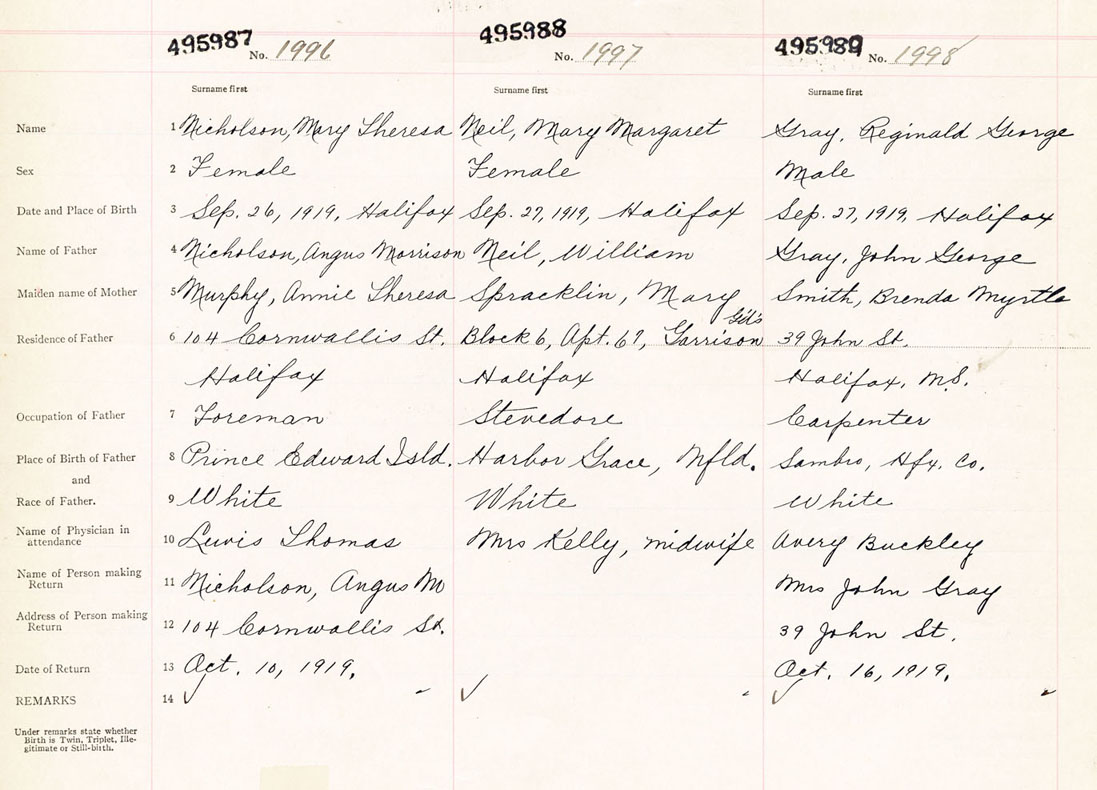 495987 No. 1996 495988 No. 1997 495989 No. 1998
Surname first Surname first Surname first
Name 1 Nicholson, Mary Theresa Neil, Mary Margaret Gray, Reginald George
Sex 2 Female Female Male
Date and Place of Birth 3 Sep. 26, 1919, Halifax Sep. 27, 1919, Halifax Sep. 27, 1919, Halifax
Name of Father 4 Nicholson, Angus Morrison Neil, William Gray, John George
Maiden name of Mother 5 Murphy, Annie Theresa Spracklin, Mary Smith, Brenda Myrtle
Residence of Father 6 104 Cornwallis St. Block 6, Apt. 67, Garrison 39 John St.
Halifax Halifax Halifax, N.S.
Occupation of Father 7 Foreman Stevedore Carpenter
Place of Birth of Father 8 Prince Edward Isld. Harbor Grace, Nfld. Sambro, Hfx. Co.
and
Race of Father. 9 White White White
Name of Physician in
attendance 10 Lewis Thomas Mrs Kelly, midwife Avery Buckley
Name of Person making
Return 11 Nicholson, Angus Mo Mrs John Gray
Address of Person making
Return 12 104 Cornwallis St. 39 John St.
Date of Return 13 Oct. 10, 1919. Oct. 16, 1919.
REMARKS 14
Under remarks state whether
Birth is Twin, Triplet, Ille-
gitimate or Still-birth.